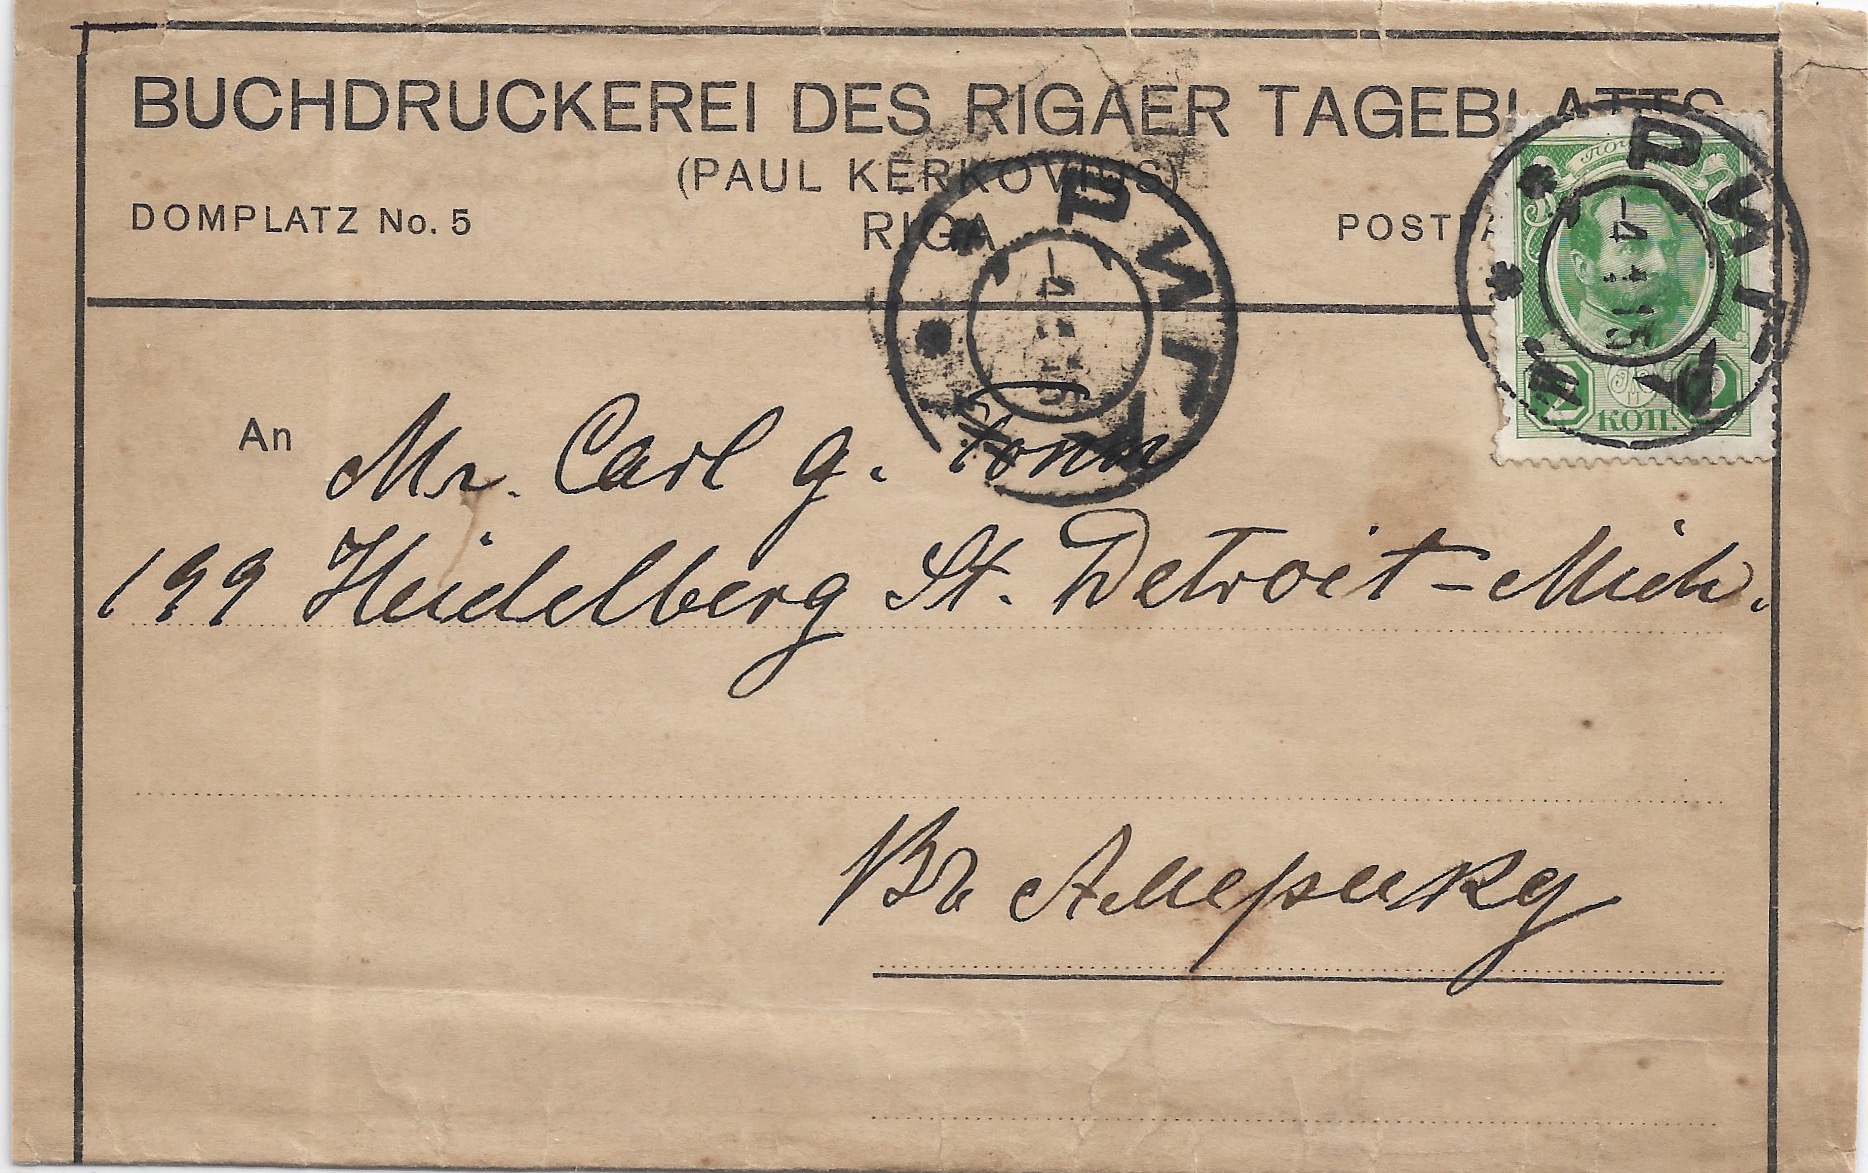 BUCHDRUCKEREI DES RIGAER TAGEBLATTS
(PAUL KERKOVIUS)
DOMPLATZ No. 5 RIGA
РИГА
-4 1 15
КОП.
РИГА
An Mr. Carl G.
199 Heidelberg St. Detroit - Mich.
Въ Америку